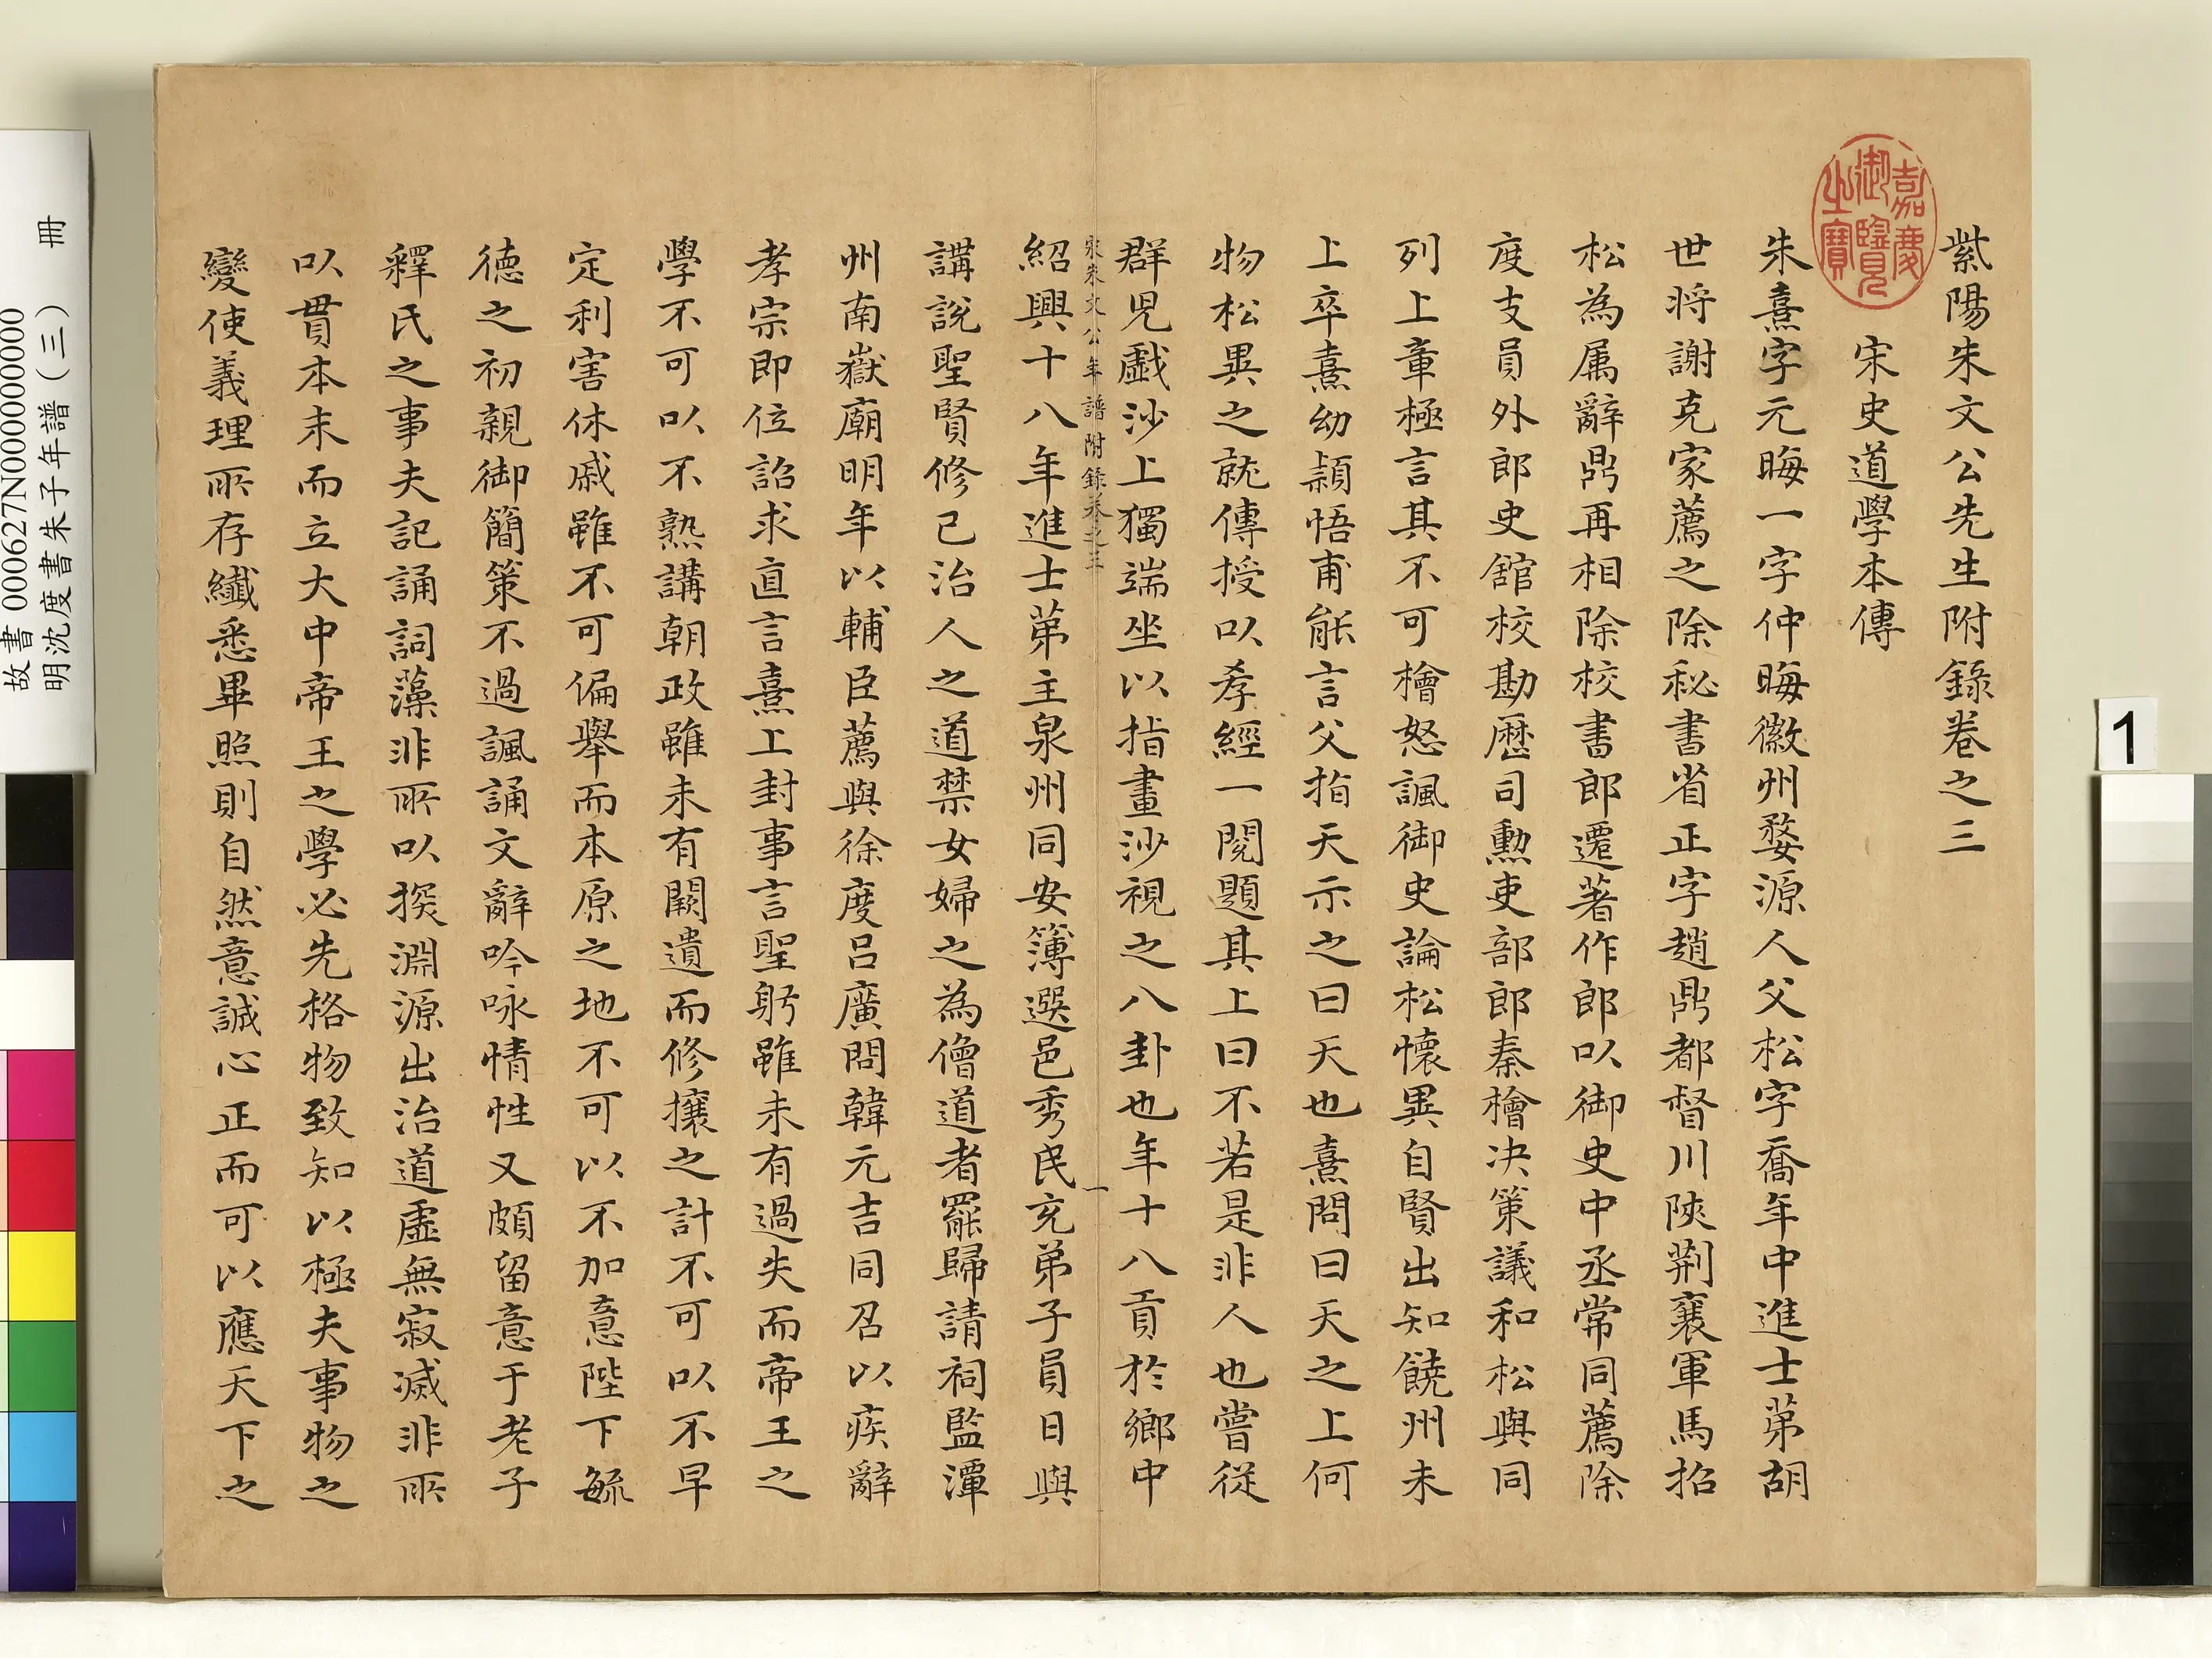 紫陽朱文公先生附錄卷之三
宋史道學本傳
朱熹字元晦一字仲晦徽州婺源人父松字喬年中進士第胡
世将謝克家薦之除秘書省正字趙鼎都督川陝荆襄軍馬招
松為属辭鼎再相除校書郎遷著作郎以御史中丞常同薦除
度支員外郎史舘校勘歴司勲吏部郎秦檜决策議和松與同
列上章極言其不可檜怒諷御史論松懷異自賢出知饒州未
上卒熹幼頴悟甫能言父指天示之曰天也熹問曰天之上何
物松異之就傅授以孝經一閱題其上曰不若是非人也嘗從
群児戯沙上獨端坐以指畫沙視之八卦也年十八貢於鄉中
宋朱文公年譜附錄卷之三
一
紹興十八年進士第主泉州同安簿選邑秀民充弟子員日與
講説聖賢修己治人之道禁女婦之為僧道者罷歸請祠監潭
州南嶽廟明年以輔臣薦與徐度呂廣問韓元吉同召以疾辭
孝宗即位詔求直言熹上封事言聖躬雖未有過失而帝王之
學不可以不熟講朝政雖未有闕遺而修攘之計不可以不早
定利害休戚雖不可偏舉而本原之地不可以不加意陛下毓
德之初親御簡策不過諷誦文辭吟咏情性又頗留意于老子
釋氏之事夫記誦詞藻非所以探淵源出治道虛無寂滅非所
以貫本末而立大中帝王之學必先格物致知以極夫事物之
變使義理所存纖悉畢照則自然意誠心正而可以應天下之
嘉慶御覽之寶
故書 000627N000000000
明沈度書朱子年譜（三） 冊
1